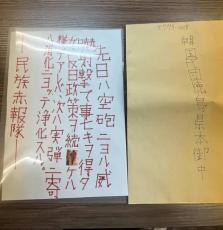 先日ハ空砲ニヨル威
嚇射撃で事ナキヲ得タ
ガ反日政策ヲ続ケル
様デアレバ次ハ実弾ニ寄
ル消化ニヨッテ浄化スル。
民族赤報隊
韓国民団徳島県本部御中